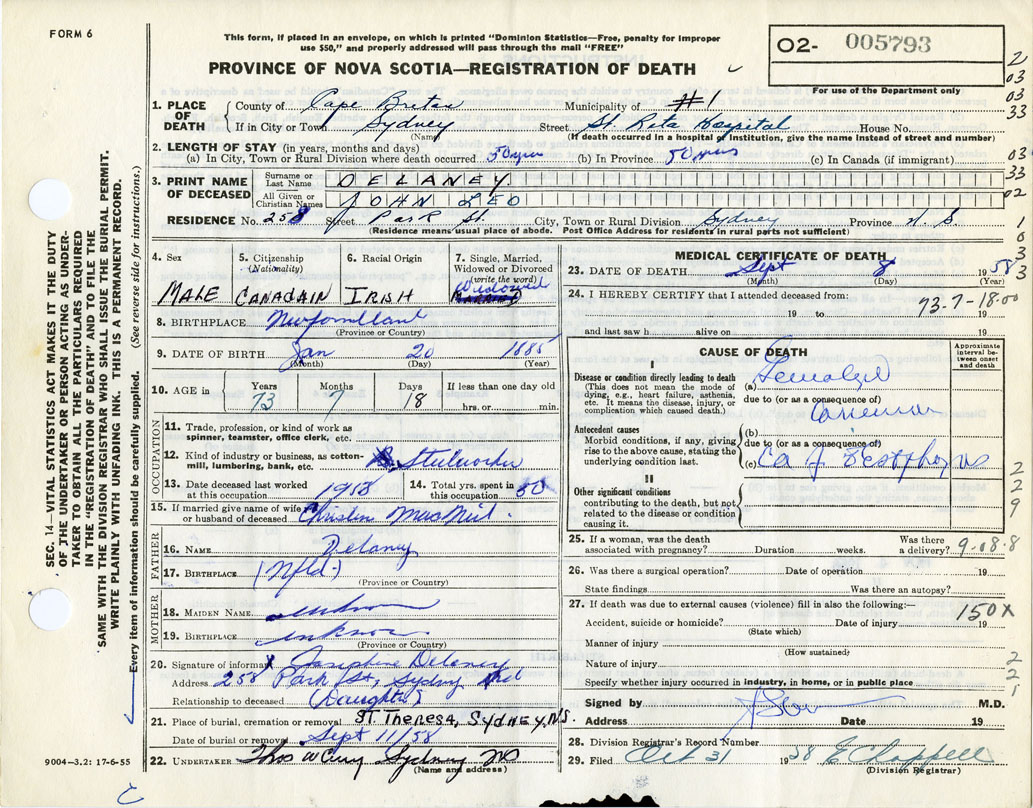 FORM 6
This form, if placed in an envelope, on which is printed "Dominion Statistics—Free, penalty for improper
use $50," and properly addressed will pass through the mail "FREE"
PROVINCE OF NOVA SCOTIA—REGISTRATION OF DEATH
02- 005793
For use of the Department only
1. PLACE OF DEATH
County of Cape Breton Municipality of #1
If in City or Town Sydney Street St Rita Hospital House No.
(Name) (If death occurred in a hospital or institution, give the name instead of street and number)
2. LENGTH OF STAY (in years, months and days)
(a) In City, Town or Rural Division where death occurred 50 yrs (b) In Province 50 yrs (c) In Canada (if immigrant)
3. PRINT NAME OF DECEASED
Surname or Last Name DELANEY
All Given or Christian Names JOHN LEO
RESIDENCE No. 258 Street Park St. City, Town or Rural Division Sydney Province N.S.
(Residence means usual place of abode. Post Office Address for residents in rural parts not sufficient)
4. Sex MALE
5. Citizenship (Nationality) CANADAIN
6. Racial Origin IRISH
7. Single, Married, Widowed or Divorced (write the word) Widowed
8. BIRTHPLACE Newfoundland
(Province or Country)
9. DATE OF BIRTH Jan 20 1885
(Month) (Day) (Year)
10. AGE in Years 73 Months 7 Days 18 If less than one day old hrs. or min.
OCCUPATION
11. Trade, profession, or kind of work as spinner, teamster, office clerk, etc.
12. Kind of industry or business, as cotton-mill, lumbering, bank, etc. Steelworker
13. Date deceased last worked at this occupation 1958
14. Total yrs. spent in this occupation 50
15. If married give name of wife or husband of deceased Christie MacNeil.
FATHER
16. NAME Delaney
17. BIRTHPLACE (Nfld.)
(Province or Country)
MOTHER
18. MAIDEN NAME unknown
19. BIRTHPLACE unknown
(Province or Country)
20. Signature of informant X Josephine Delaney
Address 258 Park St, Sydney
Relationship to deceased (Daughter)
21. Place of burial, cremation or removal ST. Theresa, SYDNEY, N.S
Date of burial or removal Sept 11/58
22. UNDERTAKER Thos W Curry Sydney NS
(Name and address)
9004—3.2: 17-6-55
MEDICAL CERTIFICATE OF DEATH
23. DATE OF DEATH Sept 8 1958
(Month) (Day) (Year)
24. I HEREBY CERTIFY that I attended deceased from:
73-7-18-00
19 to 19
and last saw h alive on 19
CAUSE OF DEATH
Approximate interval between onset and death
I
Disease or condition directly leading to death
(This does not mean the mode of dying, e.g., heart failure, asthenia, etc. It means the disease, injury, or complication which caused death.)
(a) Generalized
due to (or as a consequence of)
Antecedent causes
Morbid conditions, if any, giving rise to the above cause, stating the underlying condition last.
(b)
due to (or as a consequence of)
(c) Ca of
II
Other significant conditions
contributing to the death, but not related to the disease or condition causing it.
25. If a woman, was the death associated with pregnancy? Duration weeks. Was there a delivery? 9-08-8
26. Was there a surgical operation? Date of operation 19
State findings Was there an autopsy?
27. If death was due to external causes (violence) fill in also the following:—
150X
Accident, suicide or homicide? Date of injury 19
(State which)
Manner of injury
(How sustained)
Nature of injury
Specify whether injury occurred in industry, in home, or in public place
Signed by M.D.
Address Date 19
28. Division Registrar's Record Number
29. Filed Oct 31 1958 E Chappell
(Division Registrar)
SEC. 14—VITAL STATISTICS ACT MAKES IT THE DUTY
OF THE UNDERTAKER OR PERSON ACTING AS UNDER-
TAKER TO OBTAIN ALL THE PARTICULARS REQUIRED
IN THE "REGISTRATION OF DEATH" AND TO FILE THE
SAME WITH THE DIVISION REGISTRAR WHO SHALL ISSUE THE BURIAL PERMIT.
WRITE PLAINLY WITH UNFADING INK. THIS IS A PERMANENT RECORD.
Every item of information should be carefully supplied. (See reverse side for instructions.)
2
03
03
33
03
33
02
1
0
3
3
2
2
9
2
2
1